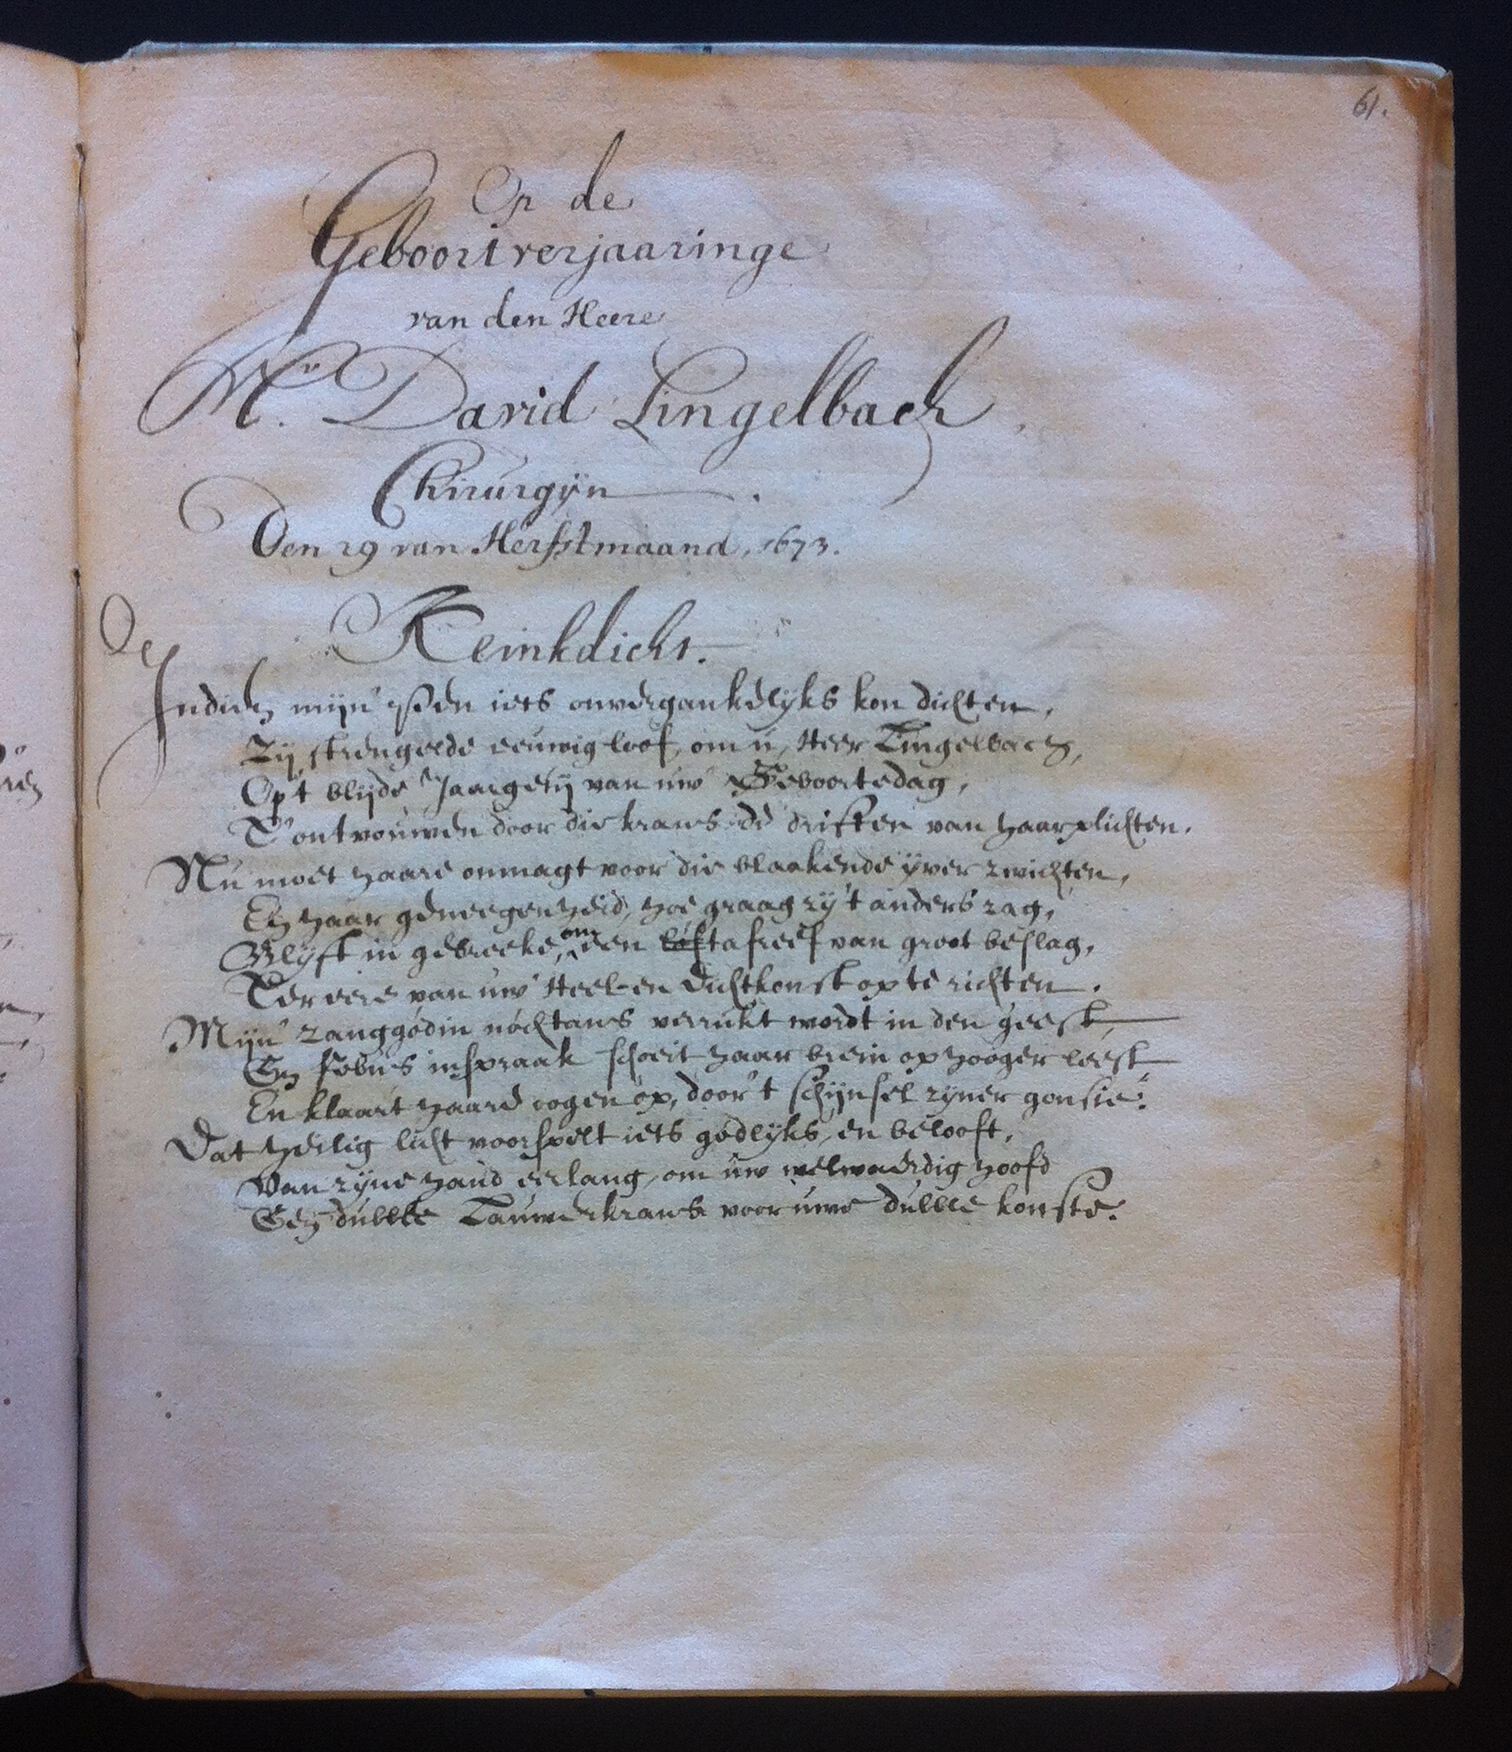 61.
Op de
Geboortverjaaringe
van den Heere
Mr. David Lingelbach,
Chirurgijn.
Den 29 van Herfstmaand, 1673.
Kleinkdicht.
Indien mijn' pen iets onvergankelyks kon dichten,
Zij strengelde eeuwig loof, om u, Heer Lingelbach,
Op 't blijde Jaargetij van uw Geboortedag,
T'ontvouwen door die krans de driften van haar plichten.
Nu moet haare onmagt voor die blaakende yver zwichten,
En haar geneegenheid, hoe graag zy 't anders zag,
Blyft in gebreeke, om een tafreel van groot beslag,
Ter eere van uw' Heel- en Dichtkonst op te richten.
Mijn' zanggodin nochtans verrukt wordt in den geest,
En Febus inspraak schoeit haar brein op hooger leest
En klaart haare oogen op, door 't schijnsel zyner gonste.
Dat heilig licht voorspelt iets godlyks, en belooft,
Van zyne hand eerlang, om uw welwaerdig hoofd
Een dubble Lauwerkrans voor uwe dubble konste.